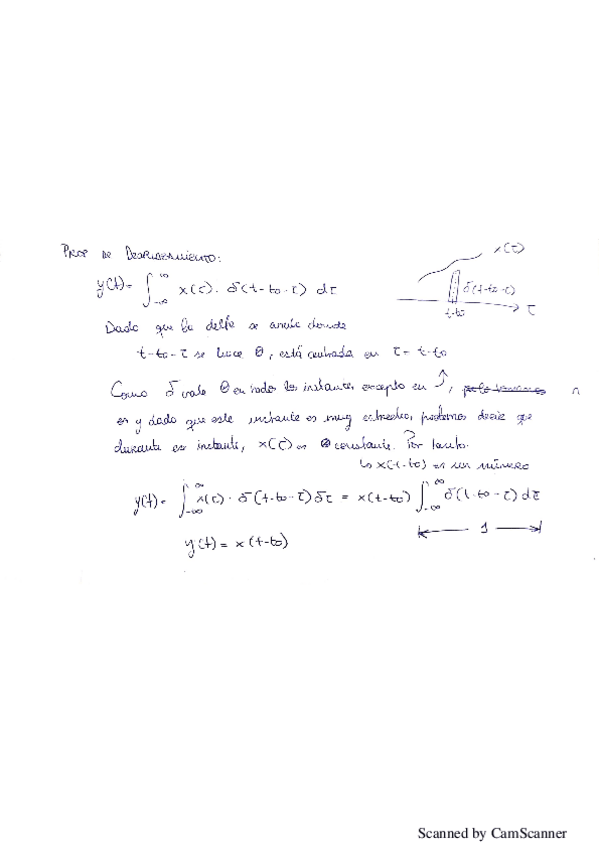 PROP DE DESPLAZAMIENTO:
x(τ)
y(t) = ∫_{-∞}^{∞} x(τ) · δ(t-to-τ) dτ
δ(t-to-τ)
t-to
τ
Dado que la delta se anula donde
t-to-τ se hace 0, está centrada en τ = t-to
Como δ vale 0 en todos los instantes excepto en ↑,
es y dado que este instante es muy estrecho, podemos decir que
durante ese instante, x(τ) es constante. Por tanto:
↳ x(t-to) es un número
y(t) = ∫_{-∞}^{∞} x(τ) · δ(t-to-τ) δτ = x(t-to) ∫_{-∞}^{∞} δ(t-to-τ) dτ
1
y(t) = x(t-to)
Scanned by CamScanner